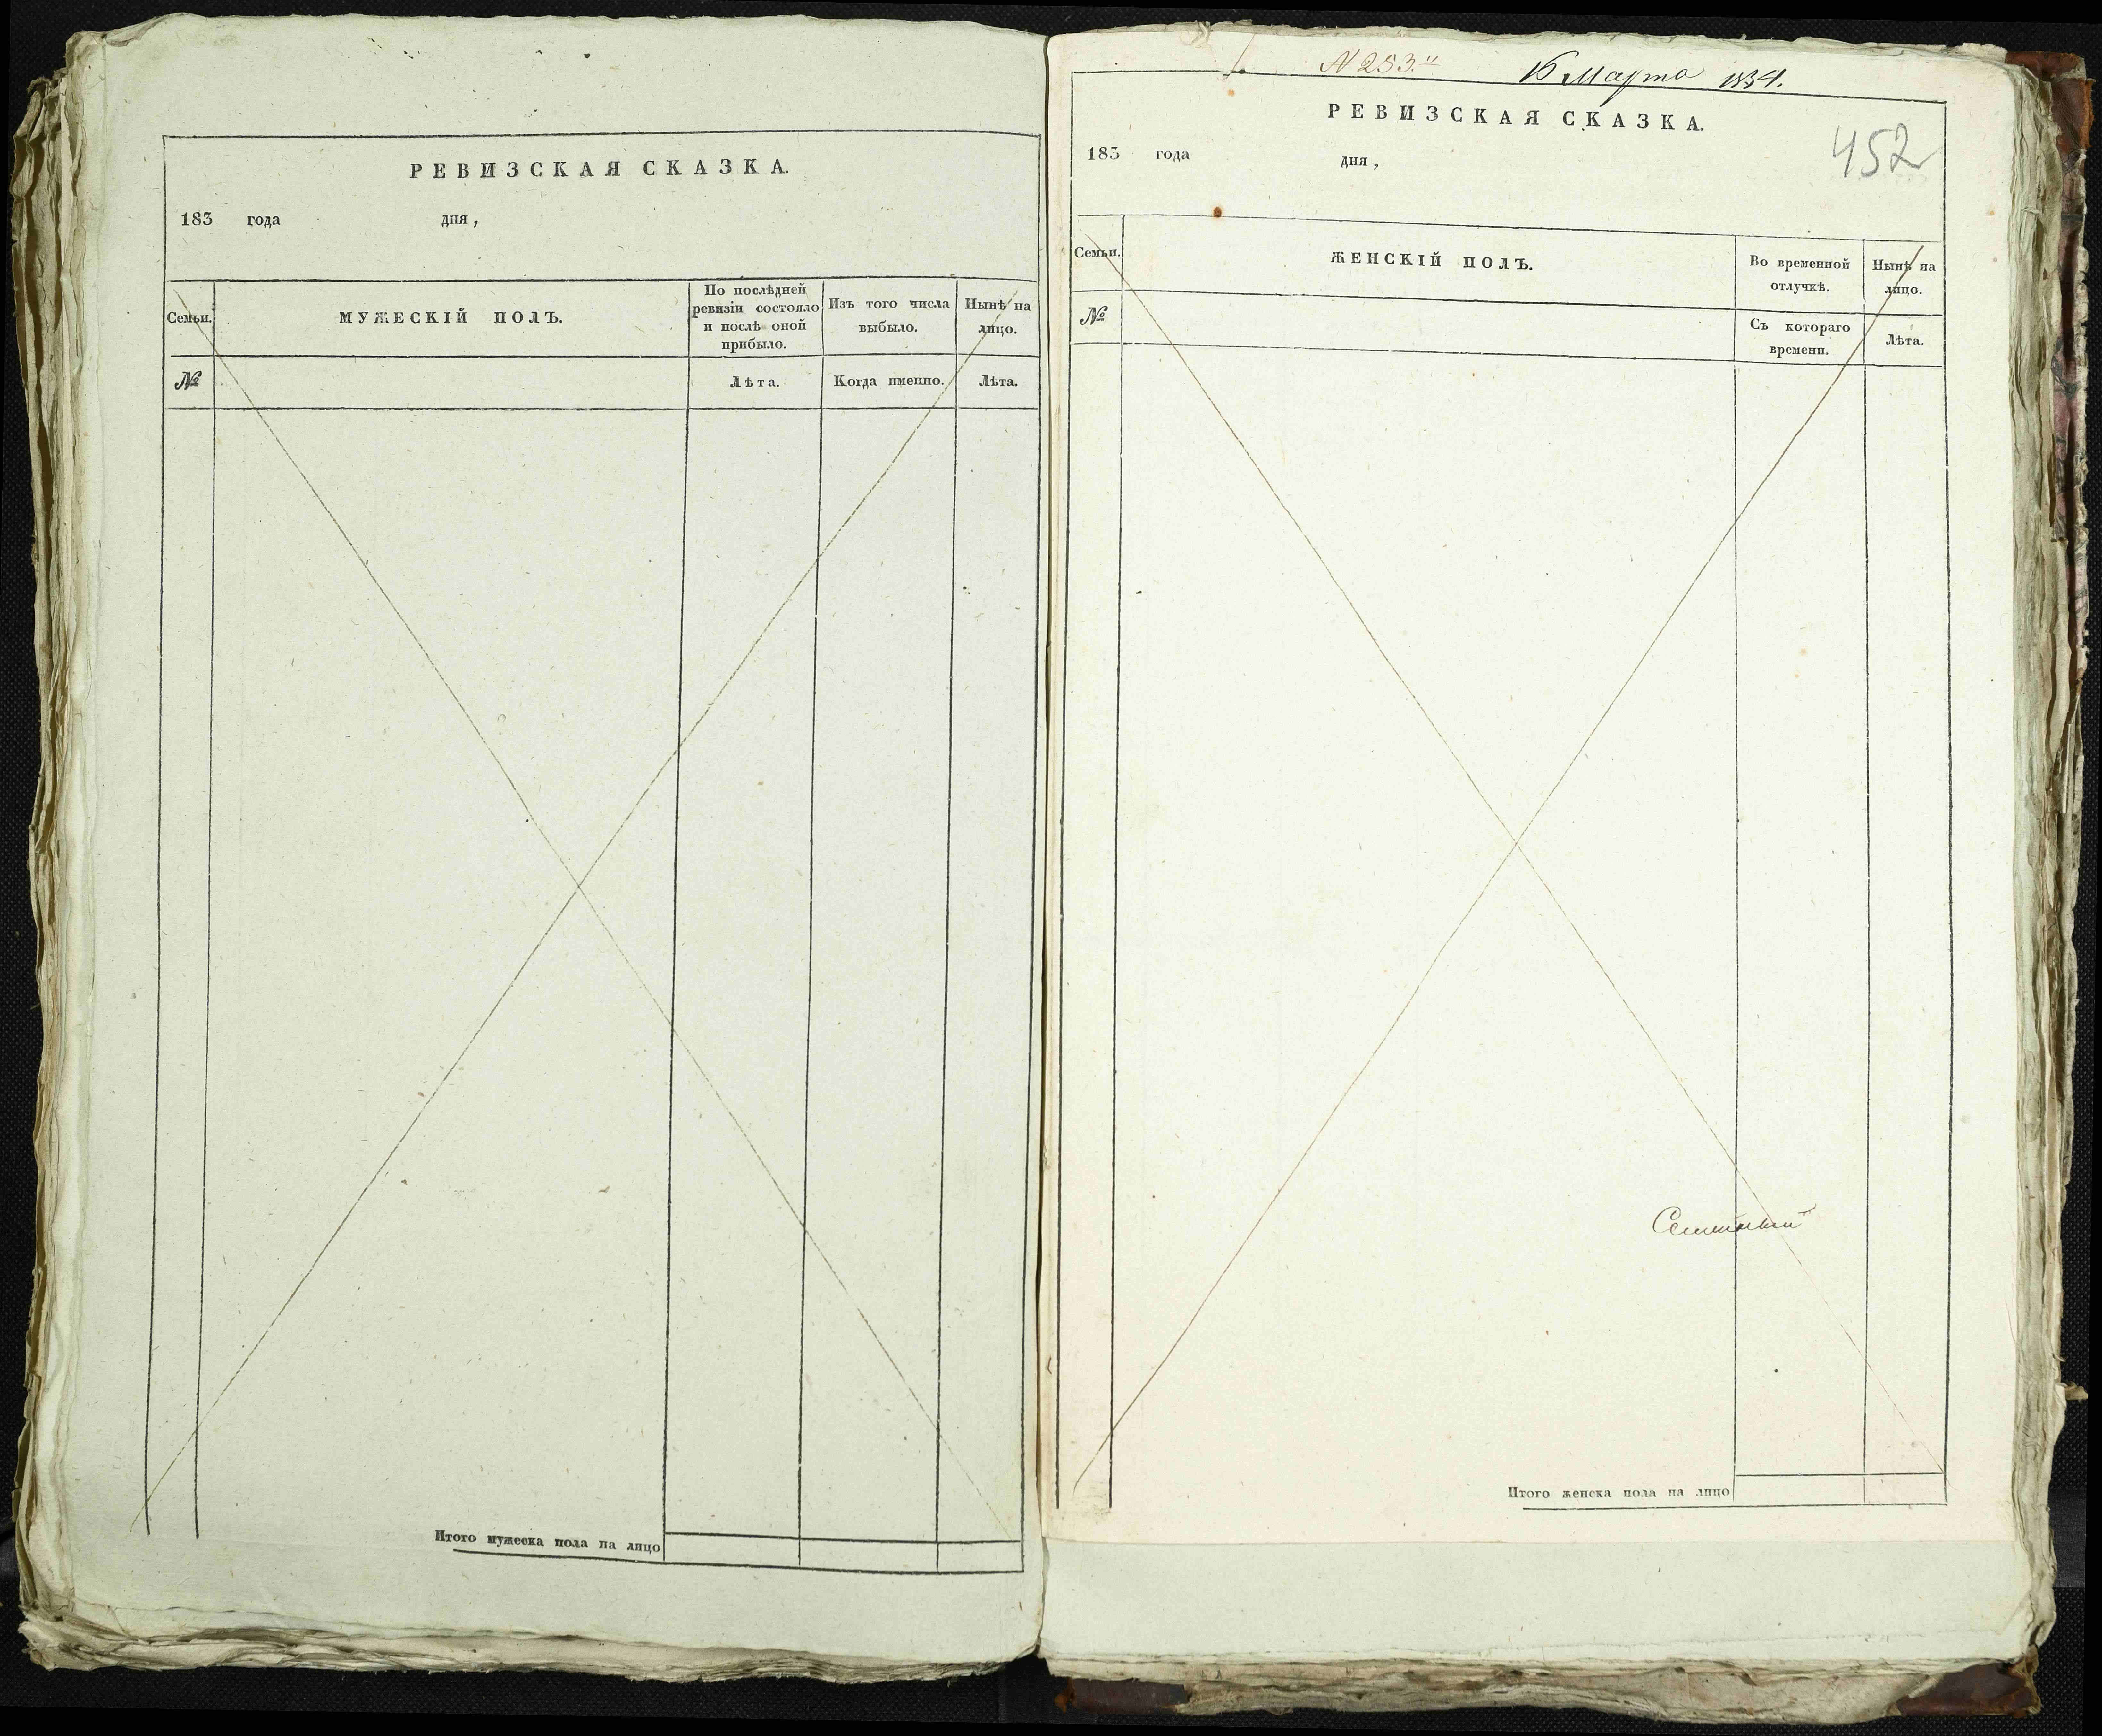 РЕВИЗСКАЯ СКАЗКА.
183 года дня,
Семьи.
МУЖЕСКІЙ ПОЛЪ.
По послѣдней
ревизіи состояло
и послѣ оной
прибыло.
Изъ того числа
выбыло.
Нынѣ на
лицо.
№
Лѣта.
Когда именно.
Лѣта.
Итого мужеска пола на лицо
N 253.
16 Марта 1834.
РЕВИЗСКАЯ СКАЗКА.
452
183 года дня,
Семьи.
ЖЕНСКІЙ ПОЛЪ.
Во временной
отлучкѣ.
Нынѣ на
лицо.
№
Съ котораго
времени.
Лѣта.
Итого женска пола на лицо